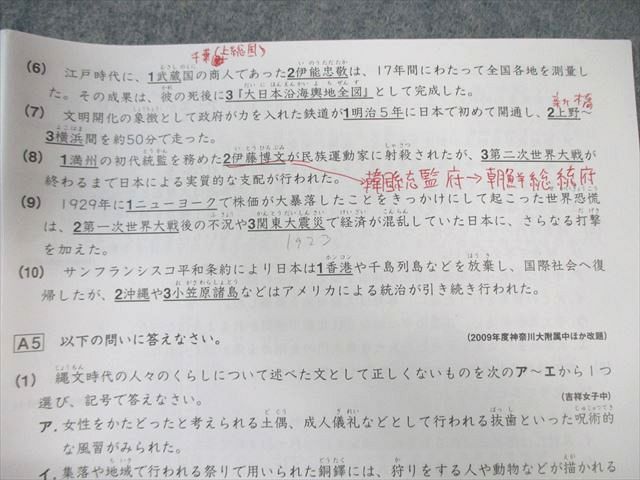 千葉(上総国)
(6) 江戸時代に、1武蔵国の商人であった2伊能忠敬は、17年間にわたって全国各地を測量し
た。その成果は、彼の死後に3『大日本沿海輿地全図』として完成した。
(7) 文明開化の象徴として政府が力を入れた鉄道が1明治5年に日本で初めて開通し、2上野〜
新橋
3横浜間を約50分で走った。
(8) 1満州の初代統監を務めた2伊藤博文が民族運動家に射殺されたが、3第二次世界大戦が
終わるまで日本による実質的な支配が行われた。
韓国統監府→朝鮮総統府
(9) 1929年に1ニューヨークで株価が大暴落したことをきっかけにして起こった世界恐慌
は、2第一次世界大戦後の不況や3関東大震災で経済が混乱していた日本に、さらなる打撃
を加えた。
1923
(10) サンフランシスコ平和条約により日本は1香港や千島列島などを放棄し、国際社会へ復
帰したが、2沖縄や3小笠原諸島などはアメリカによる統治が引き続き行われた。
A5 以下の問いに答えなさい。 (2009年度神奈川大附属中ほか改題)
(1) 縄文時代の人々のくらしについて述べた文として正しくないものを次のア〜エから1つ
選び、記号で答えなさい。 (吉祥女子中)
ア. 女性をかたどったと考えられる土偶、成人儀礼などとして行われる抜歯といった呪術的
な風習がみられた。
イ. 集落や地域で行われる祭りで用いられた銅鐸には、狩りをする人や動物などが描かれる